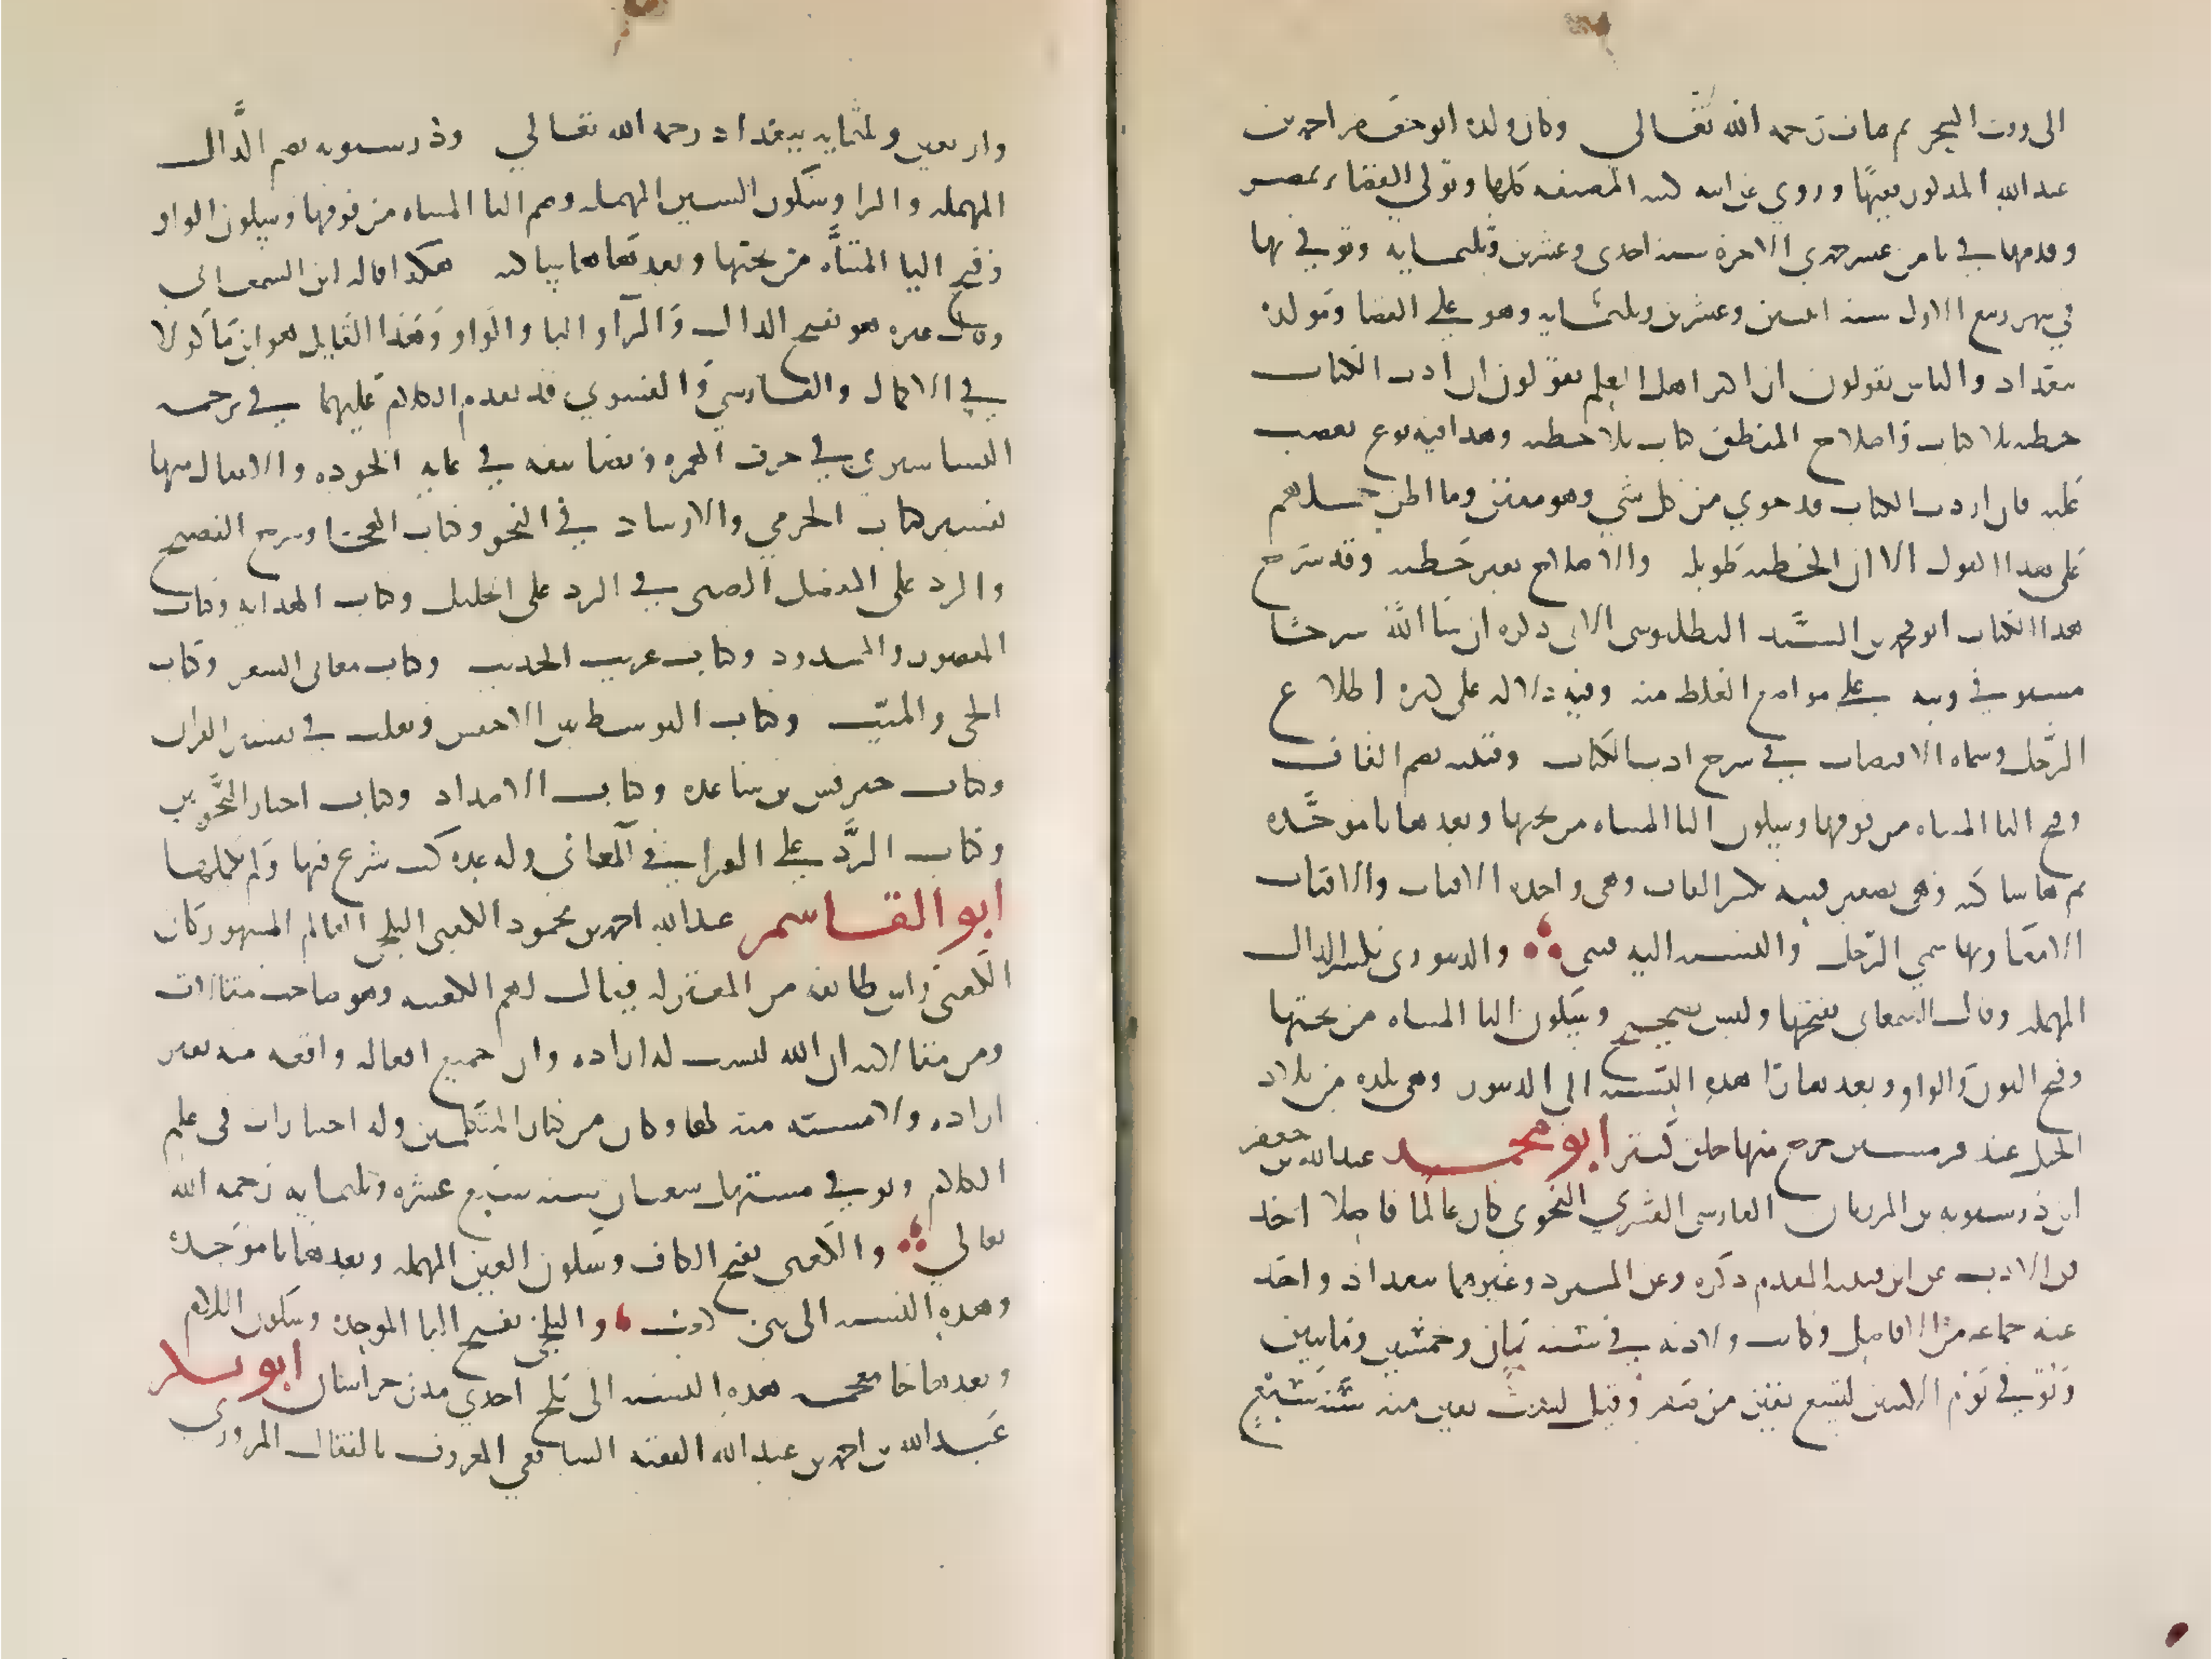 الى وقت السحر ثم مات رحمه الله تعالى وكان ولده ابو جعفر احمد بن
عبد الله المذكور فقيها وروى عن ابيه كتبه المصنفه كلها وتولى القضاء بمصر
وقدمها في ثامن عشر جمدي الاخرة سنة احدى وعشرين وثلثمايه وتوفي بها
في شهر ربيع الاول سنه اثنين وعشرين وثلثمايه وهو على القضا ومولده
ببغداد والناس يقولون ان اكثر اهل العلم يقولون ان ادب الكتاب
خطبه بلا كتاب واصلاح المنطق كتاب بلا خطبه وهذا فيه نوع تعصب
عليه فان ادب الكتاب قد حوى من كل شي وهو مفنن وما اظن حملهم
على هذا القول الا ان الخطبه طويله والاصلاح بغير خطبه وقد شرح
هذا الكتاب ابو محمد بن السيد البطليوسى الاتى ذكره ان شا الله شرحا
مستوفي ونبه على مواضع الغلط منه وفيه دلاله على كثره اطلاع
الرجل وسماه الاقتضاب في شرح ادب الكتاب وقتيبه بضم القاف
وفتح التا المثناه من فوقها وسكون اليا المثناه من تحتها وبعدها با موحده
ثم ها ساكنه وهى تصغير قتبه بكسر القاف وهى واحده الاقتاب والاقتاب
الامعا وبها سمي الرجل والنسبه اليه قتبى والدينورى بكسر الدال
المهمله وقال السمعانى بفتحها وليس بصحيح وسكون اليا المثناه من تحتها
وفتح النون والواو وبعدها را هذه النسبه الى الدينور وهى بلده من بلاد
الجبل عند قرميسين خرج منها خلق كثير ابو محمد عبد الله بن جعفر
ابن درستويه بن المرزبان الفارسى الفسوي النحوى كان عالما فاضلا اخذ
فن الادب عن ابن قتيبه المقدم ذكره وعن المبرد وغيرهما ببغداد واخذ
عنه جماعه من الافاضل وكانت ولادته في سنه ثمان وخمسين ومايتين
وتوفي يوم الاثنين لتسع بقين من صفر وقيل لست بقين منه سنه سبع
واربعين وثلثمايه ببغداد رحمه الله تعالى ودرستويه بضم الدال
المهمله والرا وسكون السين المهمله وضم التا المثناه من فوقها وسكون الواو
وفتح اليا المثناه من تحتها وبعدها ها ساكنه هكذا قاله ابن السمعانى
وقال غيره هو بفتح الدال والرا والتا والواو وهذا القايل هو ابن ماكولا
في الاكمال والفارسي والفسوي قد تقدم الكلام عليهما في ترجمه
البساسيرى في حرف الهمزه وتصانيفه في غايه الجوده والاتقان منها
تفسير كتاب الجرمي والارشاد في النحو وكتاب الهجا وشرح الفصيح
والرد على المفضل الضبى في الرد على الخليل وكتاب الهدايه وكتاب
المقصور والممدود وكتاب غريب الحديث وكتاب معانى الشعر وكتاب
الحى والميت وكتاب التوسط بين الاخفش وثعلب في تفسير القران
وكتاب خبر قس بن ساعده وكتاب الاضداد وكتاب اخبار النحويين
وكتاب الرد على الفرا في المعانى وله عده كتب شرع فيها ولم يكملها
ابو القاسم عبد الله احمد بن محمود الكعبى البلخى العالم المشهور كان
الكعبى راس طايفه من المعتزله يقال لهم الكعبيه وهو صاحب مقالات
ومن مقالاته ان الله ليست له اراده وان جميع افعاله واقعه منه بغير
اراده ولا مشيه منه لها وكان من كبار المتكلمين وله اختيارات فى علم
الكلام وتوفي مستهل شعبان سنه سبع عشره وثلثمايه رحمه الله
تعالي والكعبى بفتح الكاف وسكون العين المهمله وبعدها با موحده
وهذه النسبه الى بنى كعب والبلخى بفتح البا الموحده وسكون اللام
وبعدها خا معجمه هذه النسبه الى بلخ احدى مدن خراسان ابو بكر
عبد الله بن احمد بن عبد الله الفقيه الشافعي المعروف بالقفال المروزى